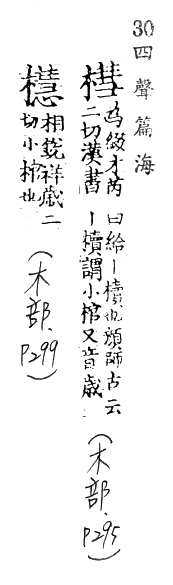 30 四聲篇海
槥 為綴才芮二切漢書曰給｜櫝也顏師古云｜櫝謂小棺又音歲 (木部.P295)
櫘 相銳祥歲二切小棺也 (木部.P299)